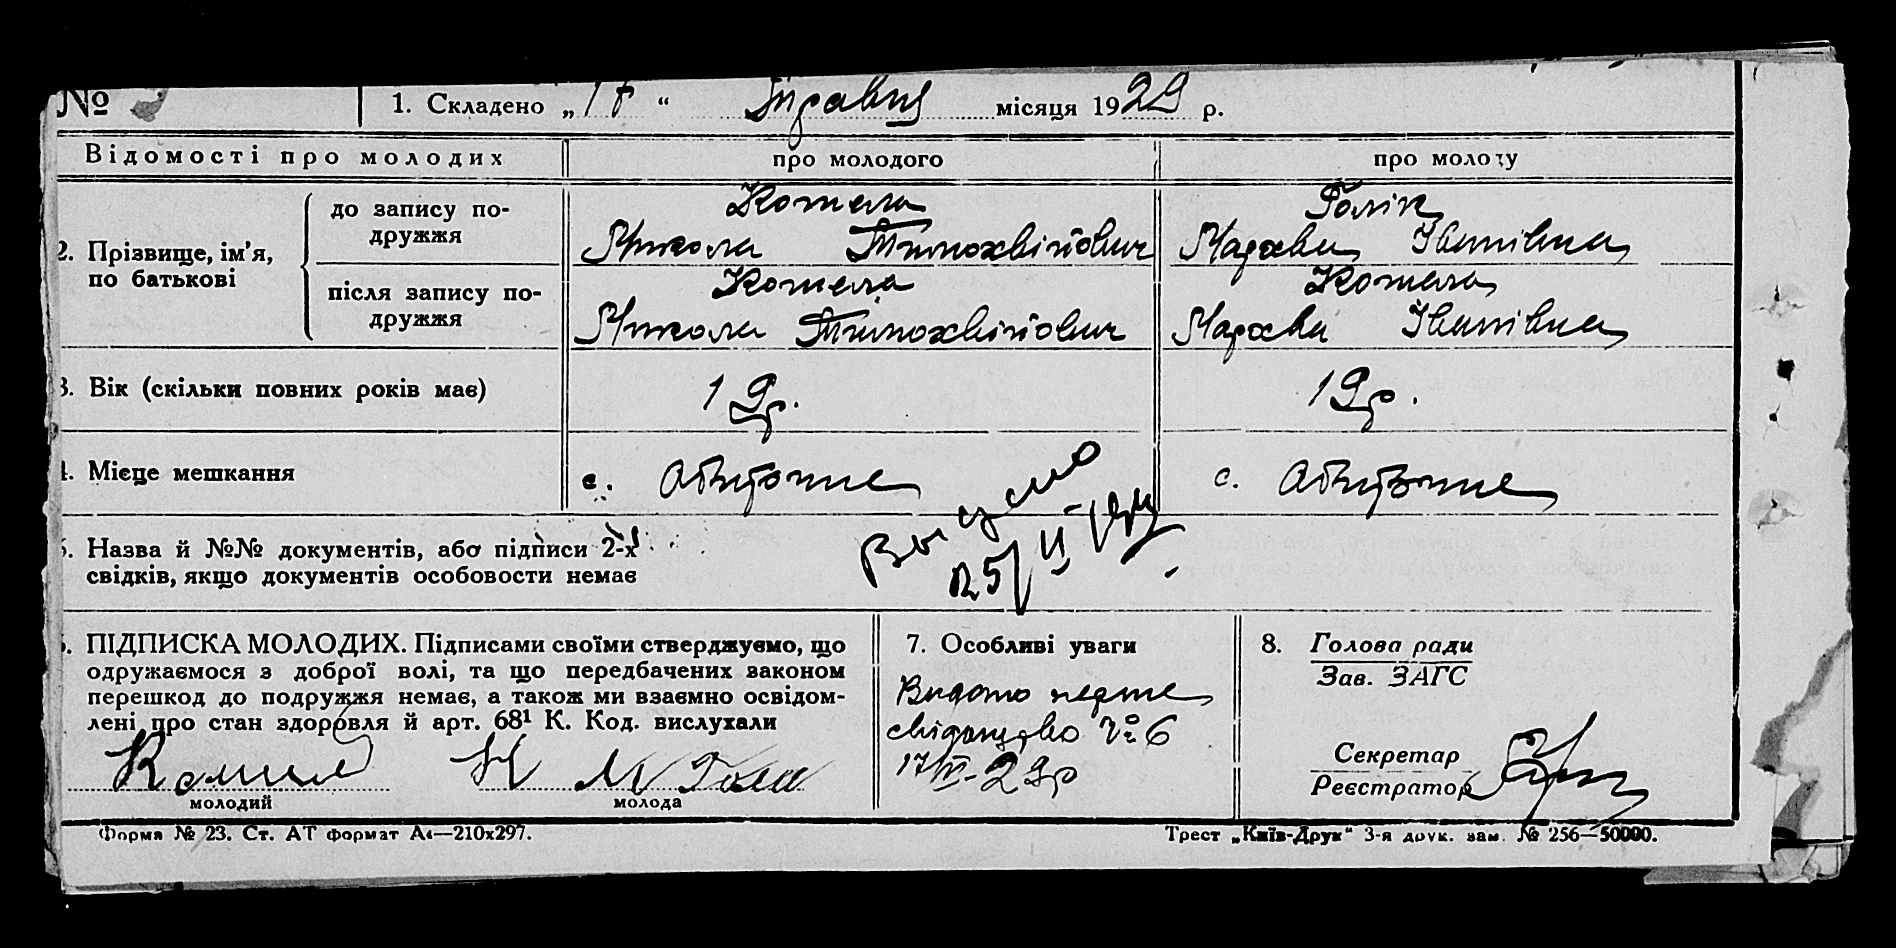 №
1. Складено „ 17 “ Травня місяця 1929 р.
Відомості про молодих
про молодого
про молоду
2. Прізвище, ім’я,
по батькові
до запису по-
дружжя
Котела
Микола Тимохвійович
Голік
Мархва Іванівна
після запису по-
дружжя
Котела
Микола Тимохвійович
Котела
Мархва Іванівна
3. Вік (скільки повних років має)
19 р.
19 р.
4. Місце мешкання
с. Обиточне
с. Обиточне
5. Назва й №№ документів, або підписи 2-х
свідків, якщо документів особовости немає
25/
6. ПІДПИСКА МОЛОДИХ. Підписами своїми стверджуємо, що
одружаємося з доброї волі, та що передбачених законом
перешкод до подружжя немає, а також ми взаємно освідом-
лені про стан здоров'я й арт. 68¹ К. Код. вислухали
молодий
молода
7. Особливі уваги
Видано перше
свідоцтво № 6
17/ 29 р
8. Голова ради
Зав. ЗАГС
Секретар
Реєстратор
Форма № 23. Ст. АТ формат А4—210х297.
Трест „Київ-Друк“ 3-я друк. зам. № 256—50000.